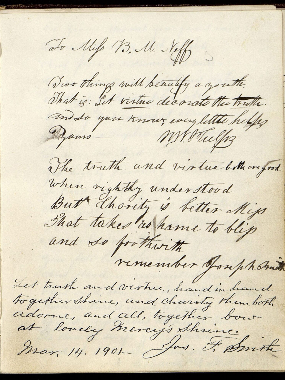 To Miss B. M. Neff
Two things will beautify a youth
That is: Let virtue decorate the truth
and so you know; every little helps
Yours W W Phelps
The truth and virtue both are good
when rightly understood
But Charity is better Miss
That takes us home to bliss
and so forthwith
remember Joseph Smith
Let truth and virtue, hand in hand
together shine, and charity them both
adorne, and all, together bow
at lovely Mercy's Shrine.
Mar. 14, 1901. Jos. F. Smith